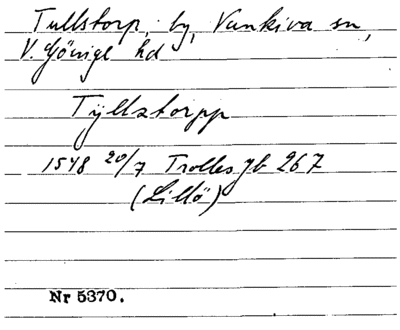 Tullstorp, by, Vankiva sn,
V. Göinge hd
Tÿllstorpp
1548 20/7 Trolles Jb 267
(Lillö)
Nr 5370.